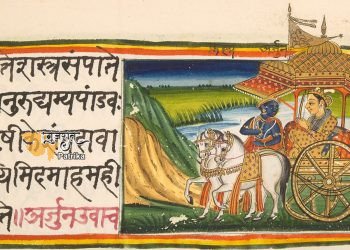 त्तेशस्त्रसंपाते
नुरुद्यम्यपांडवः
यमिदमाहमही
ते॥अर्जुनउवाच
अर्जुन
Patrika